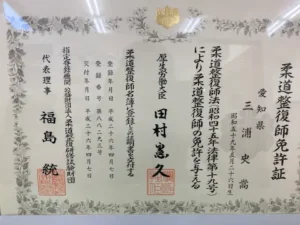 柔道整復師免許証
愛知県
三浦史尚
昭和五十九年五月二十六日生
柔道整復師法(昭和四十五年法律第十九号)
により柔道整復師の免許を与える
厚生労働大臣 田村憲久
柔道整復師名簿に登録し本証明書を交付する
登録年月日 平成二十六年四月七日
登録番号
交付年月日 平成二十六年四月七日
指定登録機関 公益財団法人柔道整復研修試験財団
代表理事 福島統